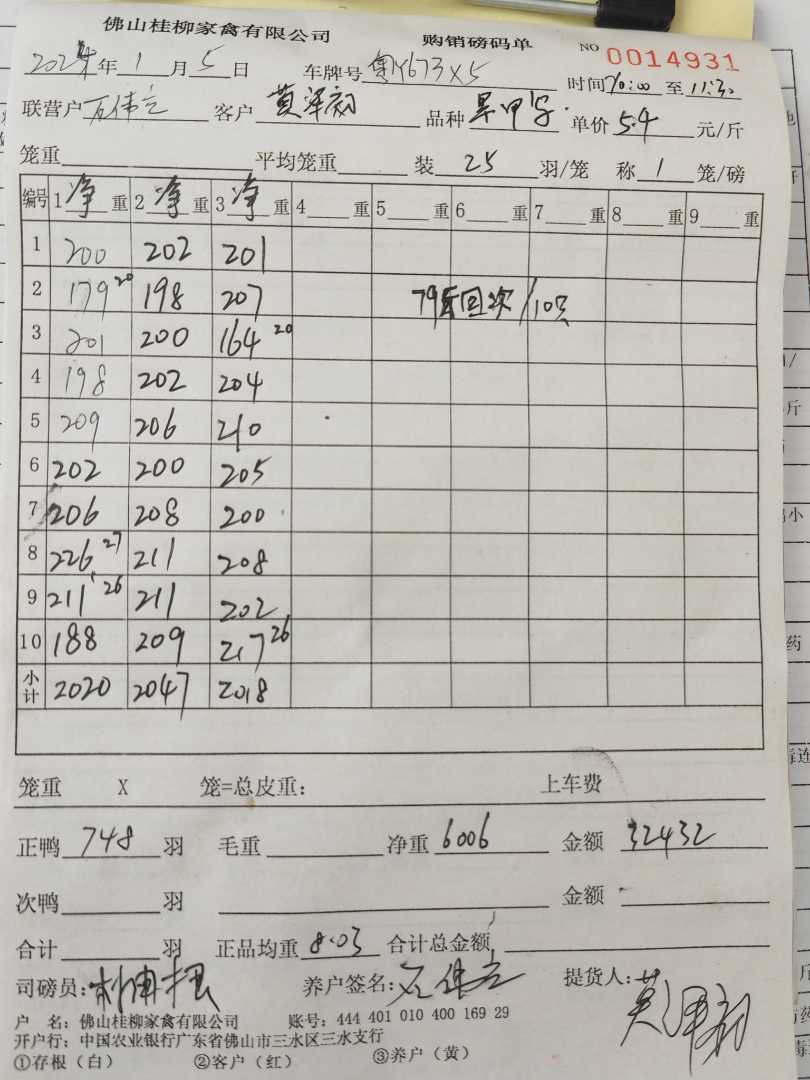 佛山桂柳家禽有限公司 购销磅码单 NO 0014931
2024年1月5日 车牌号粤Y673X5 时间10:00至11:30
联营户 石伟立 客户 莫泽初 品种 单价5.4元/斤
笼重 平均笼重 装 25 羽/笼 称 1 笼/磅
编号 1净重 2净重 3净重 4 重 5 重 6 重 7 重 8 重 9 重
1 200 202 201
2 179 20 198 207 79 回次/10只
3 201 200 164 20
4 198 202 204
5 209 206 210
6 202 200 205
7 206 208 200
8 226 27 211 208
9 211 26 211 202
10 188 209 217 26
小计 2020 2047 2018
笼重 X 笼=总皮重: 上车费
正鸭 748 羽 毛重 净重 6006 金额 32432
次鸭 羽 金额
合计 羽 正品均重 8.03 合计总金额
司磅员: 养户签名: 石伟立 提货人: 莫泽初
户 名: 佛山桂柳家禽有限公司 账号: 444 401 010 400 169 29
开户行: 中国农业银行广东省佛山市三水区三水支行
①存根（白） ②客户（红） ③养户（黄）